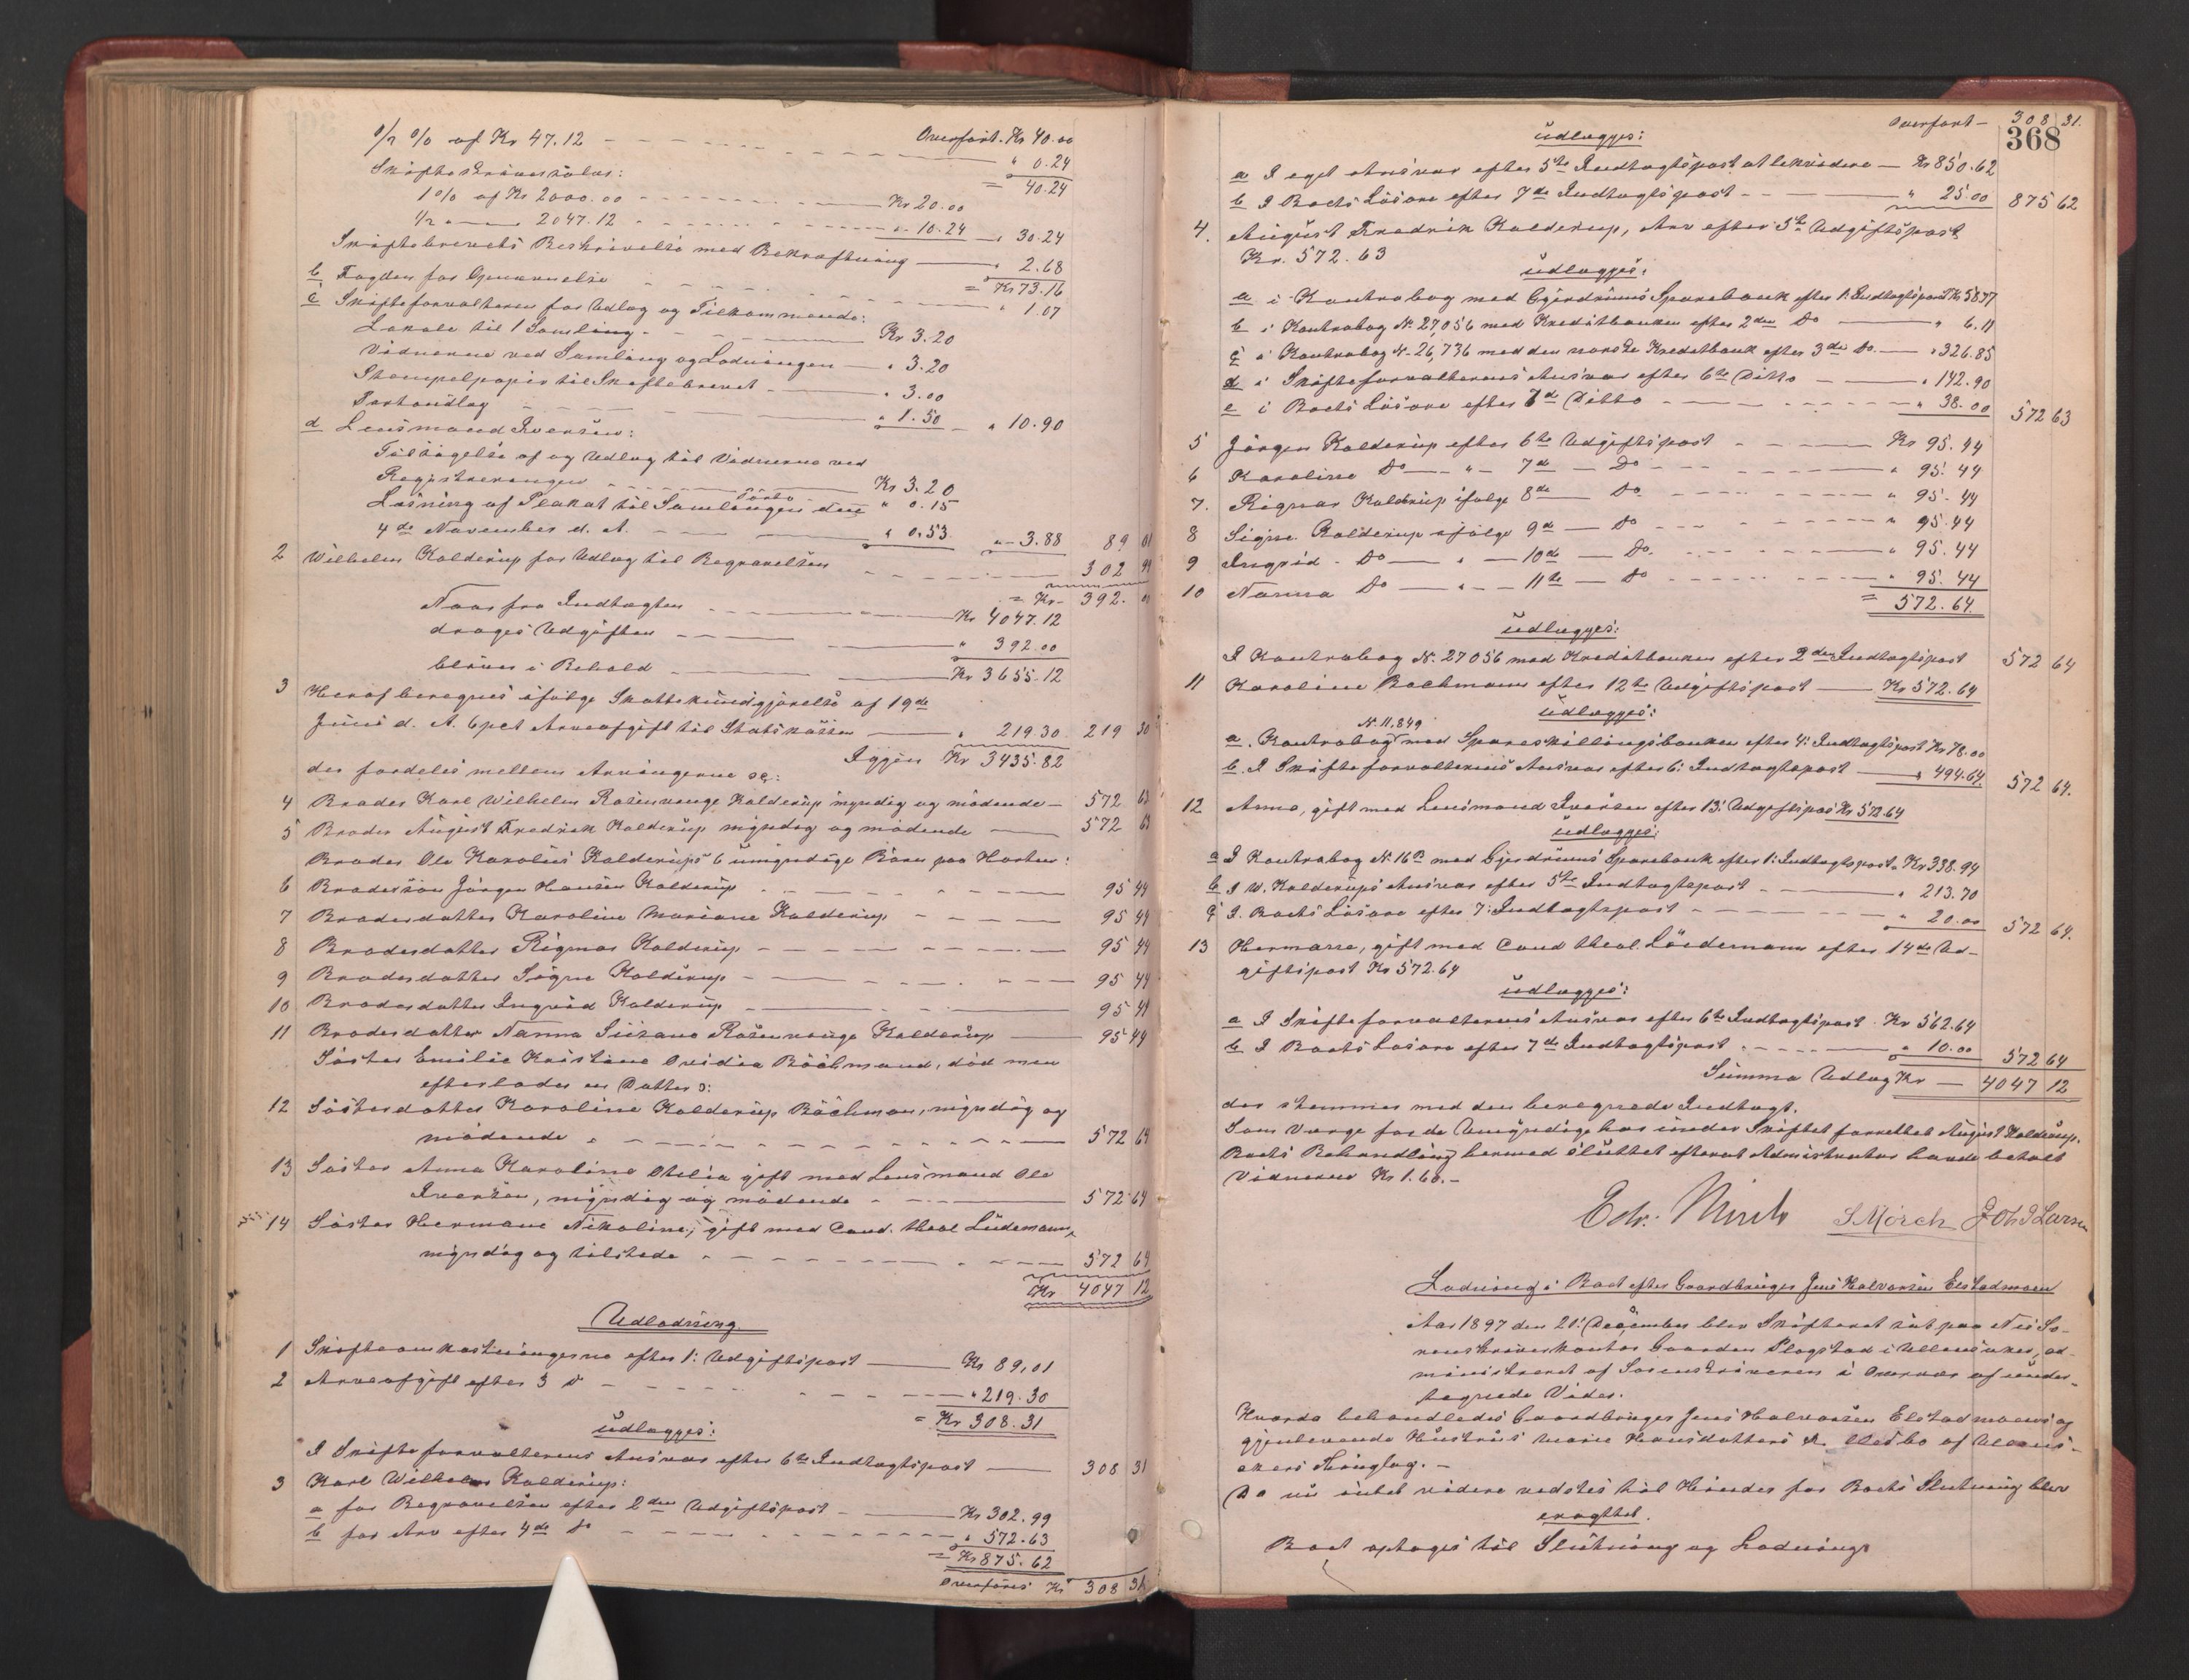 ½ % af Kr 47.12 Overført. Kr 40.00
" 0.24
Skifteskriversalær: = 40.24
1% af Kr 2000.00 Kr 20.00
½ " 2047.12 " 10.24 " 30.24
Skiftebrevets Beskrivelse med Bekræftning " 2.68
= Kr 73.16
b Fogden for Opnævnelse " 1.07
c Skifteforvalteren for Udlæg og Tilkommende:
Lokale til 1 Samling Kr 3.20
Vidnerne ved Samling og Lodningen " 3.20
Stempelpapir til Skiftebrevet " 3.00
Portoudlæg " 1.50 " 10.90
d Lensmand Iversen:
Tilsigelse af og Udlæg til Vidnerne ved
Registreringen Kr 3.20
Porto " 0.15
Læsning af Plakat til Samlingen den
4de November d. A. " 0.53 " 3.88 89 01
2 Wilhelm Kolderup for Udlæg til Begravelsen 302 99
= Kr 392. 00
Naar fra Indtægten Kr 4047.12
drages Udgiften " 392.00
bliver i Behold Kr 3655.12
3 Heraf beregnes ifølge Skattekundgjørelse af 19de
Juni d. A. 6 pct Arveafgift til Statskassen " 219.30 219 30
Igjen Kr 3435.82
der fordeles mellem Arvingerne sa:
4 Broder Karl Wilhelm Rosenvinge Kolderup myndig og mødende 572 63
5 Broder August Fredrik Kolderup myndig og mødende 572 63
Broder Ole Karolius Kolderups 6 umyndige Børn paa Horten:
6 Brodersøn Jørgen Hansen Kolderup 95 44
7 Broderdatter Karoline Mariane Kolderup 95 44
8 Broderdatter Rigmor Kolderup 95 44
9 Broderdatter Signe Kolderup 95 44
10 Broderdatter Ingrid Kolderup 95 44
11 Broderdatter Nanna Susane Rosenvinge Kolderup 95 44
Søster Emilie Kristine Ovidia Bachmand, død men
efterlader en Datter o:
12 Søsterdatter Karoline Kolderup Bachman, myndig og
mødende 572 64
13 Søster Anna Karoline Otilia gift med Lensmand Ole
Iversen, myndig og mødende 572 64
14 Søster Hermane Nikoline, gift med Cand. theol Lüdemann,
myndig og tilstede 572 64
Kr 4047 12
Udlodning.
1 Skifteomkostningerne efter 1: Udgiftspost Kr 89,01
2 Arveafgift efter 3 do " 219.30
= Kr 308.31
udlægges:
I Skifteforvalterens Ansvar efter 6te Indtægtspost 308 31
3 Karl Wilhelm Kolderup:
a for Begravelsen efter 2den Udgiftspost Kr 302.99
b for Arv efter 4de do " 572.63
= Kr 875.62
Overføres Kr 308 31
Overført 308 31.
368
udlægges:
a I eget Ansvar efter 5te Indtægtspost at likvidere Kr 850.62
b I Boets Løsøre efter 7de Indtægtspost " 25.00 875 62
4. August Fredrik Kolderup, Arv efter 5te Udgiftspost
Kr. 572.63
udlægges:
a i Kontrabog med Gjerdrums Sparebank efter 1: Indtægtspost Kr 58.77
b i Kontrabog No. 27,056 med Kreditbanken efter 2den Do " 6.11
c i Kontrabog No. 26,736 med den norske Kreditbank efter 3die Do. " 326.85
d i Skifteforvalterens Ansvar efter 6te Ditto " 142.90
e i Boets Løsøre efter 7de Ditto " 38.00 572 63
5 Jørgen Kolderup efter 6te Udgiftspost Kr 95.44
6 Karoline Do " 7de Do " 95.44
7. Rigmor Kolderup ifølge 8de Do " 95.44
8 Signe Kolderup ifølge 9de Do " 95.44
9 Ingrid Do " 10de Do. " 95.44
10 Nanna Do " 11te Do " 95.44
= 572.64.
udlægges:
I Kontrabog No. 27056 med Kreditbanken efter 2den Indtægtspost 572 64
11 Karoline Bachmann efter 12te Udgiftspost Kr 572.64
udlægges:
No. 11,849
a. Kontrabog med Spareskillingsbanken efter 4: Indtægtspost Kr 78.00
b. I Skifteforvalterens Ansvar efter 6: Indtægtspost " 494.64. 572 64.
12 Anna, gift med Lensmand Iversen efter 13: Udgiftspost Kr 572.64
udlægges:
a I Kontrabog No. 16 med Gjerdrums Sparebank efter 1: Indtægtspost Kr 338.94
b I W. Kolderups Ansvar efter 5te Indtægtspost " 213.70
c I. Boets Løsøre efter 7: Indtægtspost " 20.00 572 64.
13 Hermane, gift med Cand theol. Lüdemann efter 14de Ud-
giftspost Kr 572.64
udlægges:
a I Skifteforvalterens Ansvar efter 6te Indtægtspost Kr 562.64
b I Boets Løsøre efter 7de Indtægtspost " 10.00 572 64
Summa Udlæg Kr 4047 12
der stemmer med den beregnede Indtægt.
Som Værge for de Umyndige har under Skiftet forrettet August Kolderup.
Boets Behandling hermed sluttet efterat Administrator havde betalt
Vidnerne Kr 1.60.-
S Mørch Joh J Larsen
Lodning i Boet efter Gaardbruger Jens Halvorsen Elstadmoen
Aar 1897 den 21: December blev Skifteret sat paa Nes So-
renskriverkontor Gaarden Plogstad i Ullensaker, ad-
ministreret af Sorenskriveren i Overvær af under-
tegnede Vidner.
Hvorda behandledes Gaardbruger Jens Halvorsen Elstadmoens og
gjenlevende Hustrus Marie Hansdatters Fællesbo af Ullens-
akers Thinglag. -
Da nu intet videre vedstes til Hinder for Boets Slutning blev
eragttet.
Boet optages til Slutning og Lodning